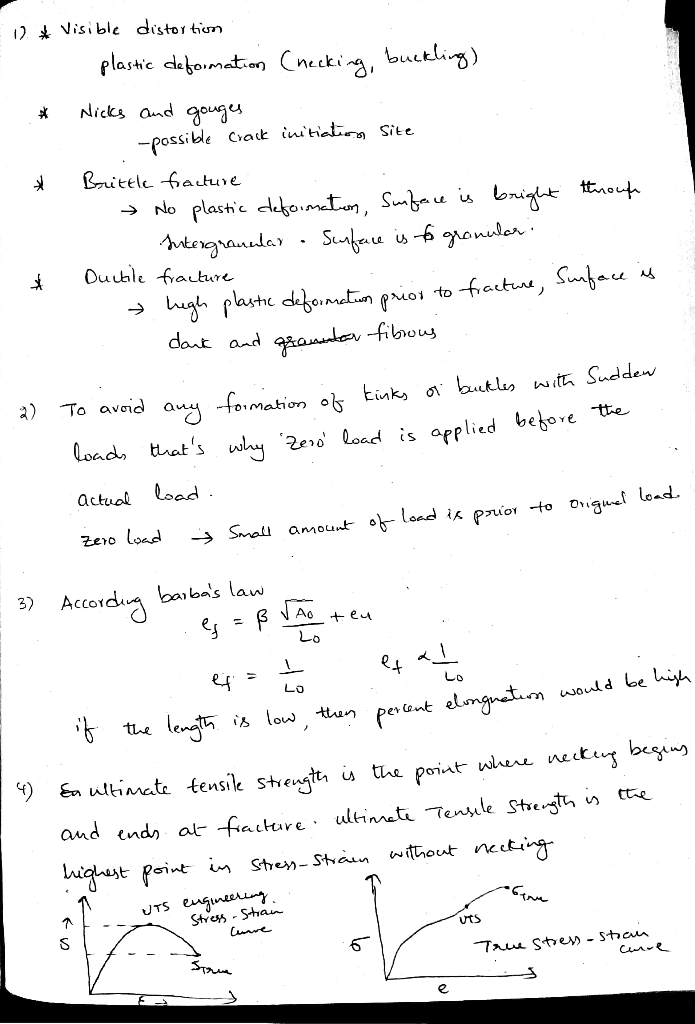 1) * Visible distortion
plastic deformation (necking, buckling)
* Nicks and gouges
- possible crack initiation site
* Brittle fracture
→ No plastic deformation, Surface is bright through
Intergranular. Surface is granular.
* Ductile fracture
→ high plastic deformation prior to fracture, Surface is
dark and granular fibrous
2) To avoid any formation of kinks or buckles with Sudden
loads that's why 'zero' load is applied before the
actual load.
zero load → Small amount of load is prior to original load.
3) According barba's law
ef = β √A0 / L0 + eu
ef = 1/L0 ef ∝ 1/L0
if the length is low, then percent elongnation would be high
4) ultimate tensile strength is the point where necking begins
and ends at fracture. ultimate Tensile Strength is the
highest point in Stress-Strain without necking
UTS engineering
Stress-Strain
Curve
S →
S True
ε →
σ True
UTS
True Stress-Strain
curve
σ
e